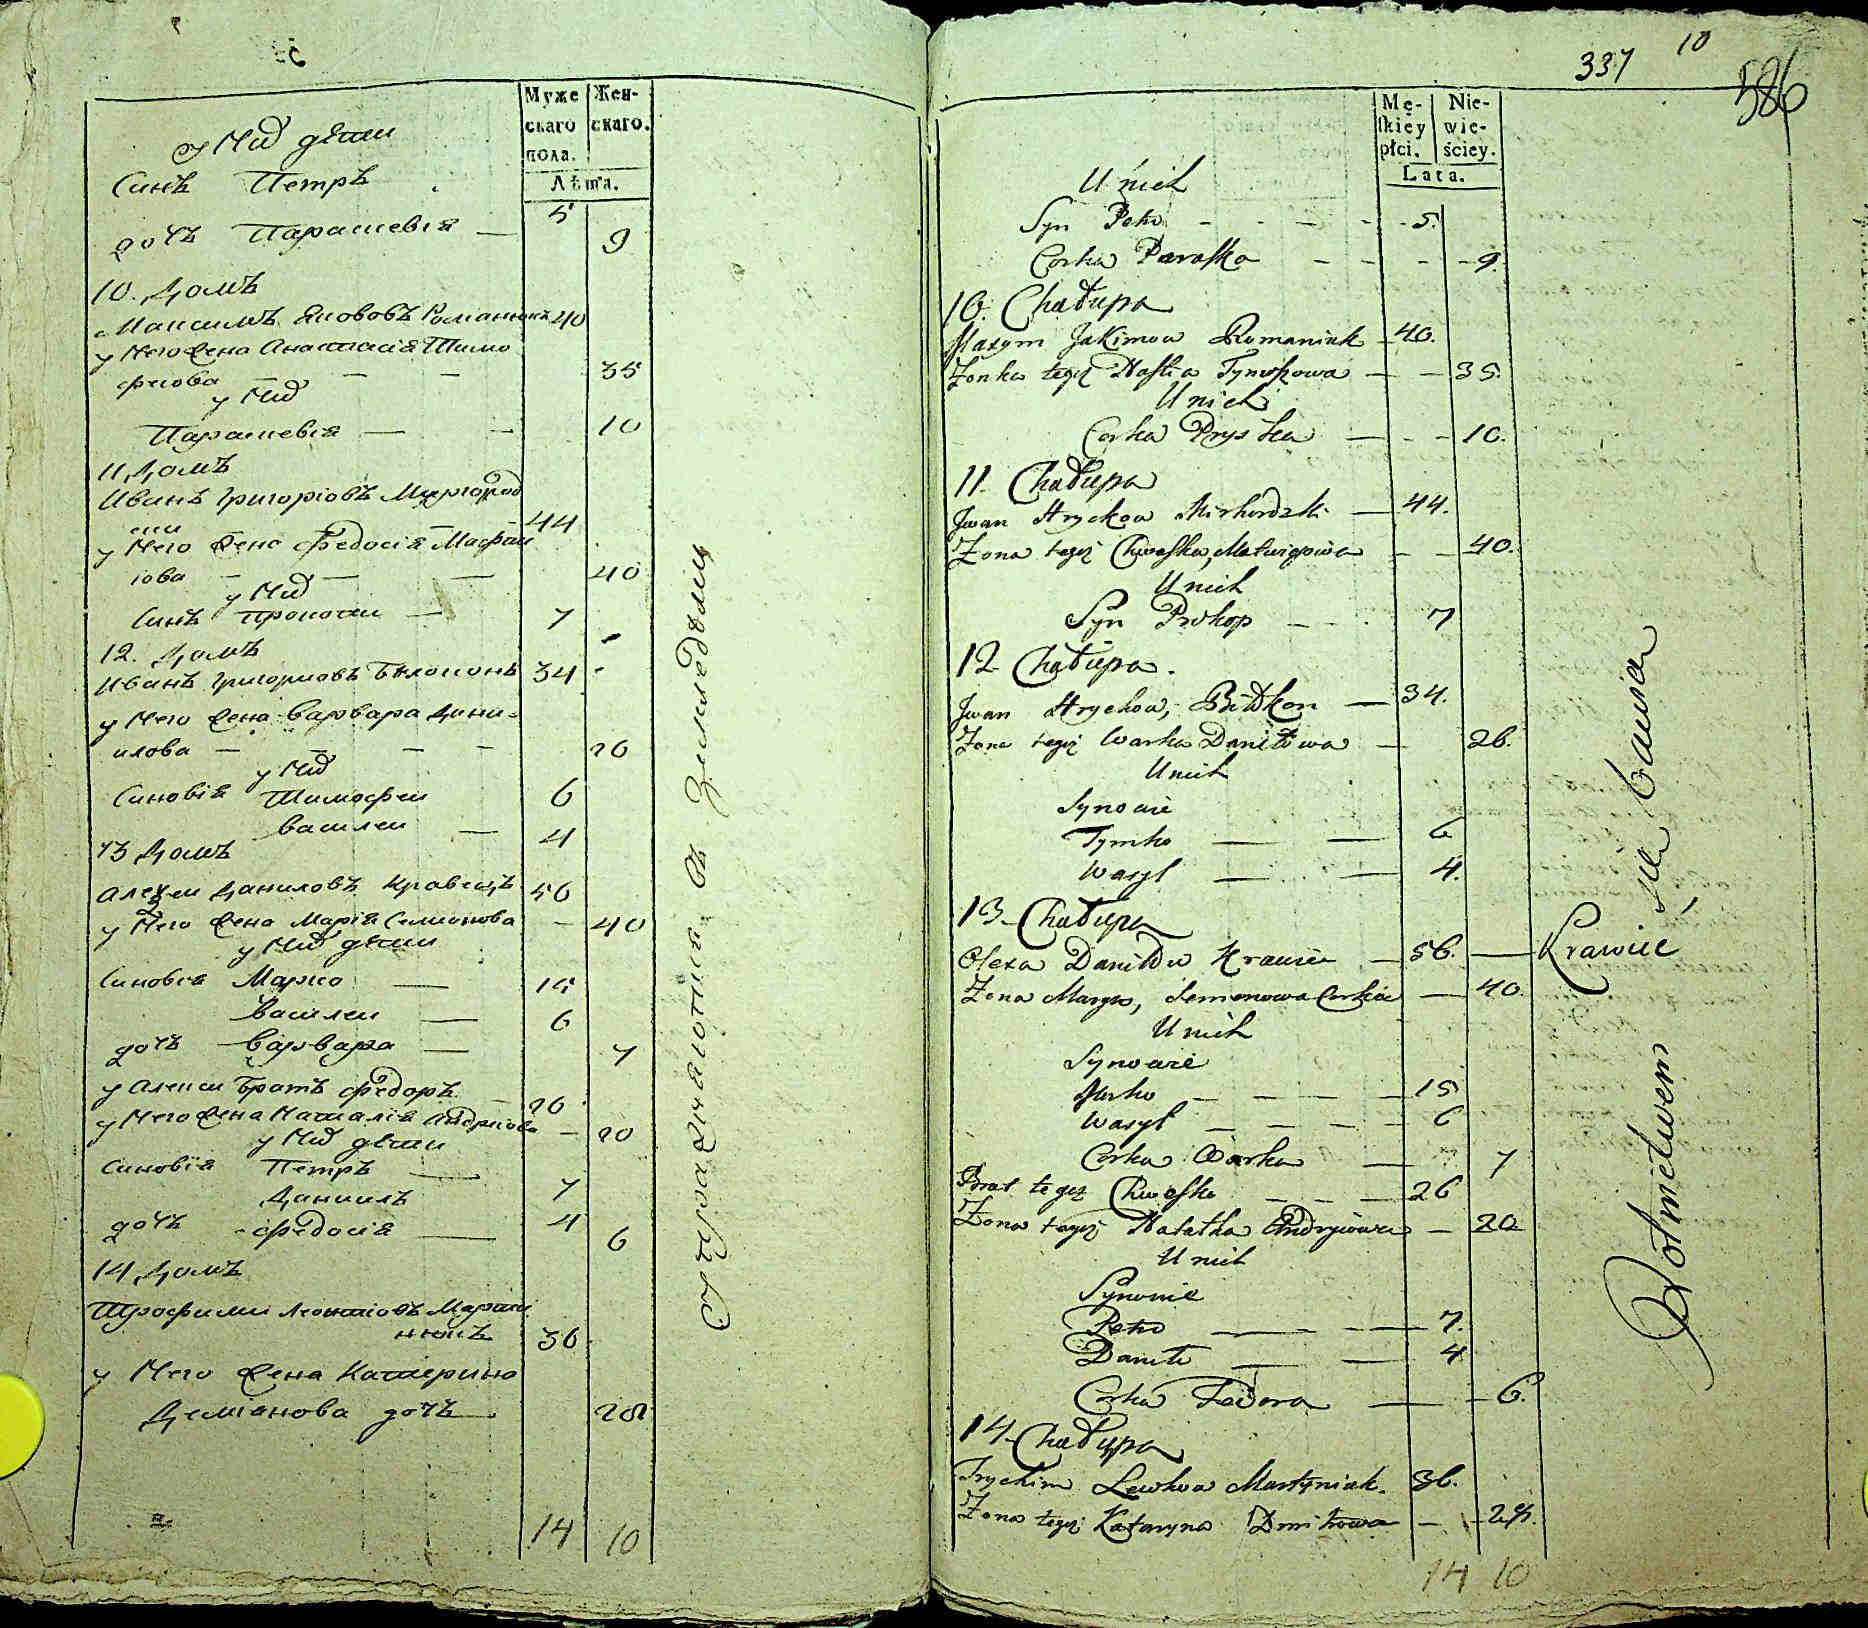 Муже
скаго
пола.
Жен-
скаго.
Лѣта.
у них дѣти
Синъ Петръ 5
дочъ Парасковія — 9
10. Домъ
Максимъ Якововъ Романюкъ 40
у него жена Анастасія Тимо
феіова — — — 35
у них
Парасковія — — 10
11 Домъ
Иванъ Григоріовъ Миргород
ски — 44
у него жена Федосія Матфеи
іова — — — 40
у них
Синъ Прокопи — 7
12. Домъ
Иванъ Григориовъ Бѣлоконъ 34
у него жена Варвара Дани-
илова — — — — 26
у них
Синовія Тимофеи 6
Василеи — 4
13 Домъ
Алеѯеи Даниловъ Кравецъ 56
у него жена Марія Семионова — 40
у них дѣти
Синовія Марко — 15
Василеи — 6
дочъ Варвара — 7
у Алекси братъ Федоръ — 26
у него жена Наталія Андриова — 20
у них дѣти
Синовія Петръ — 7
Даниилъ 4
дочъ Федосія — 6
14 Домъ
Трофими Леонтіовъ Марти
нюкъ 36
у него жена Катерина
Деміанова дочъ — 28
14 10
упражняютця въ Земледѣлиу
337 10
586
Mę-
skiey
płci.
Nie-
wie-
ściey.
Lata.
U nich
Syn Petro - - - - 5.
Corka Paraska - - - - 9.
10. Chałupa
Maxym Jakimow Romaniuk - 40.
Zonka tegoż Nastia Tymoszowa - - 35.
U nich
Corka Pryska — - - 10.
11. Chałupa
Jwan Hryckow Mirhordzki — 44.
Zona tegoż Chweska, Matwiejowa - - 40.
U nich
Syn Prokop - - - 7
12 Chałupa.
Jwan Hryckow, Biłokon — 34.
Zona tegoż Warka Daniłowa — 26.
U nich
Synowie
Tymko — — 6
Wasyl — — 4.
13. Chałupa
Olexa Daniłow Krawiec — 56. — Krawiectwem się bawia
Zona Marya, Semenowa Corka — 40.
U nich
Synowie
Marko - - - - 15
Wasyl - - - - 6
Corka Warka — 7
Brat tegoż Chwesko - - - 26
Zona tegoż Natałka Andryiowa — 20
U nich
Synowie
Petro — - — 7.
Daniło — — 4
Corka Fedora — - 6.
14. Chałupa
Trychim Lewkow Martyniuk. 36.
Zona tegoż Kataryna Dmitrowa — - 28.
14 10
Rolnictwem